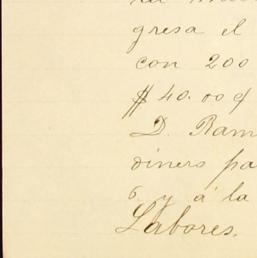 gresa el
con 200
$ 40.00 ¢
D. Ram
dinero pa
6 y á la
Labores.